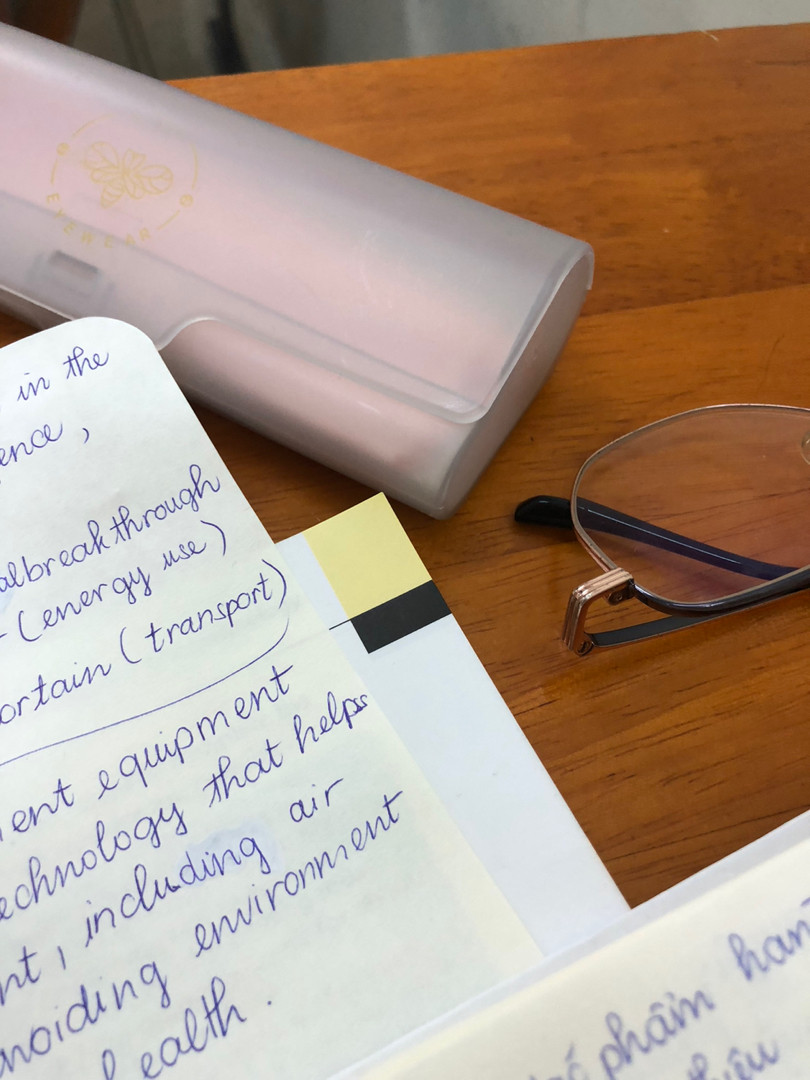 EYEWEAR
in the
ence,
albreakthrough
- (energy use)
ortain (transport)
ment equipment
echnology that helps
nt, including air
noiding environment
health.
phẩm han